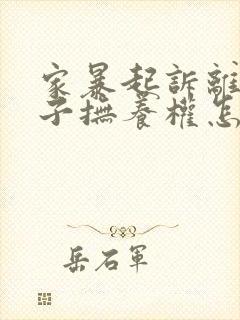 家暴起訴離
子撫養權怎
岳石軍